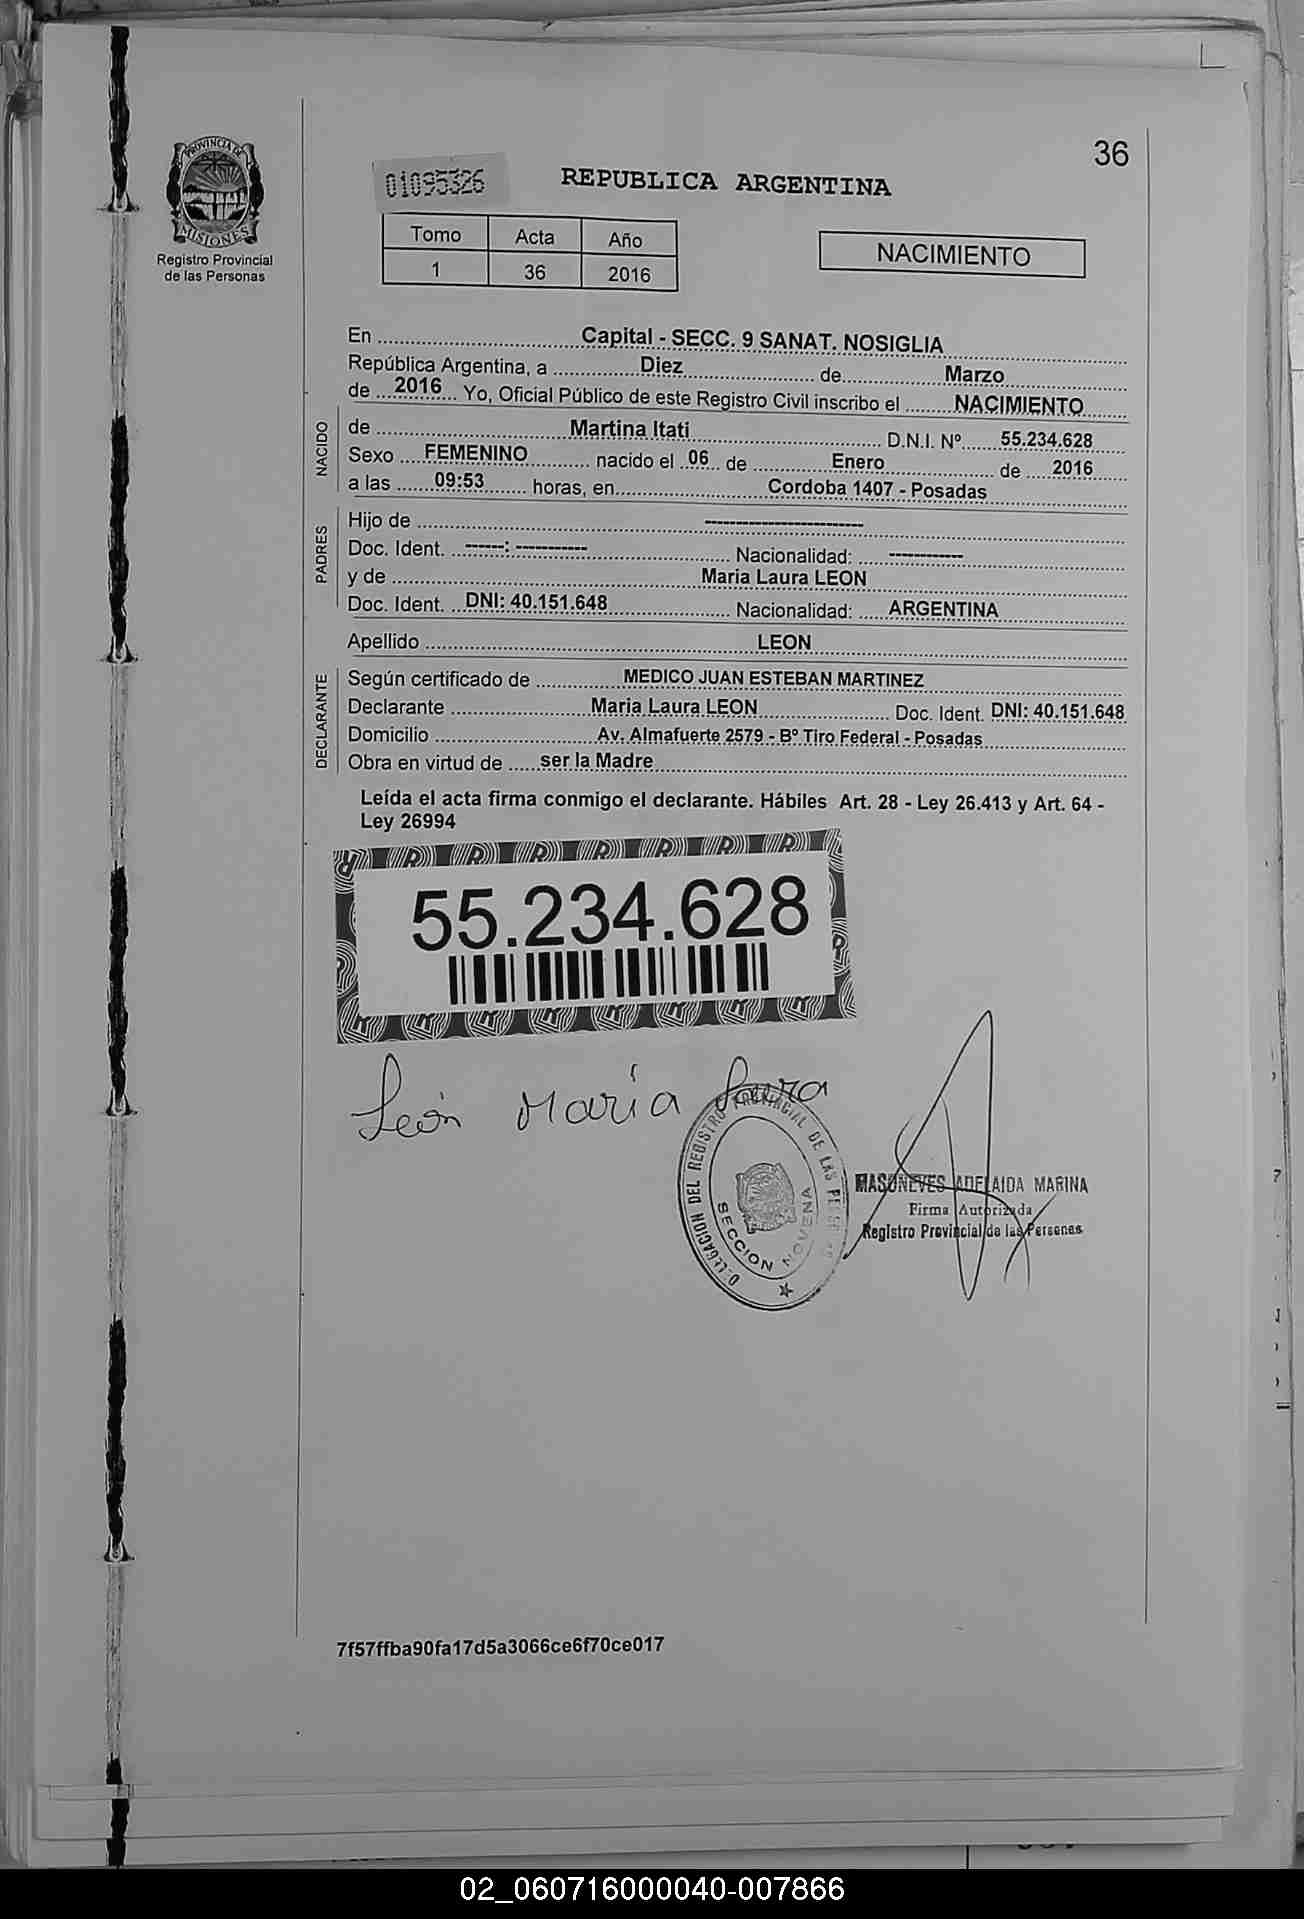 36
PROVINCIA DE
MISIONES
Registro Provincial
de las Personas
01095326
REPUBLICA ARGENTINA
Tomo Acta Año
1 36 2016
NACIMIENTO
En Capital - SECC. 9 SANAT. NOSIGLIA
República Argentina, a Diez de Marzo
de 2016 Yo, Oficial Público de este Registro Civil inscribo el NACIMIENTO
NACIDO
de Martina Itati D.N.I. Nº 55.234.628
Sexo FEMENINO nacido el 06 de Enero de 2016
a las 09:53 horas, en Cordoba 1407 - Posadas
PADRES
Hijo de -------------------------
Doc. Ident. ------: ----------- Nacionalidad: -----------
y de Maria Laura LEON
Doc. Ident. DNI: 40.151.648 Nacionalidad: ARGENTINA
Apellido LEON
DECLARANTE
Según certificado de MEDICO JUAN ESTEBAN MARTINEZ
Declarante Maria Laura LEON Doc. Ident. DNI: 40.151.648
Domicilio Av. Almafuerte 2579 - Bº Tiro Federal - Posadas
Obra en virtud de ser la Madre
Leída el acta firma conmigo el declarante. Hábiles Art. 28 - Ley 26.413 y Art. 64 -
Ley 26994
55.234.628
León María Laura
DELEGACION DEL REGISTRO PROVINCIAL DE LAS
SECCION NOVENA
MASUNEVES ADELAIDA MARINA
Firma Autorizada
Registro Provincial de las Personas
7f57ffba90fa17d5a3066ce6f70ce017
02_060716000040-007866